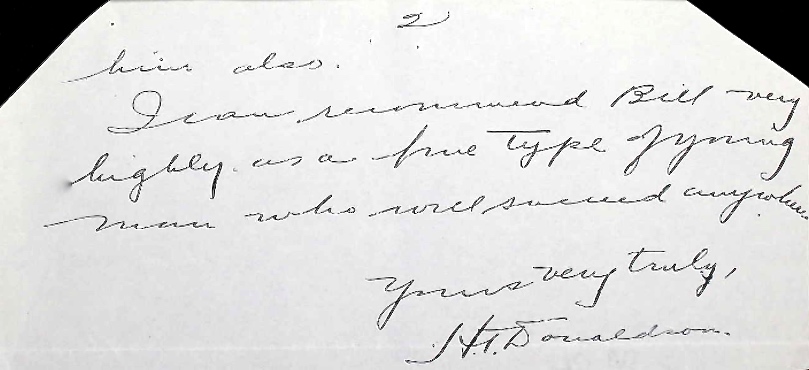 2
him also.
I can recommend Bill very
highly as a fine type of young
man who will succeed anywhere.
Yours very truly,
H.T. Donaldson.